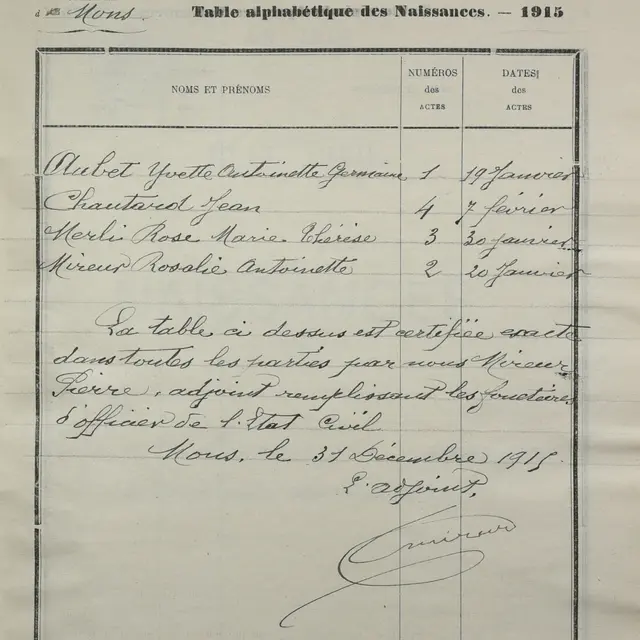 de Mons. Table alphabétique des Naissances. — 1915
NOMS ET PRÉNOMS NUMÉROS des ACTES DATES des ACTES
Aubet Yvette Antoinette Germaine 1 19 Janvier
Chautard Jean 4 7 février
Merli Rose Marie Thérèse 3 30 Janvier
Mireur Rosalie Antoinette 2 20 Janvier
La table ci dessus est certifiée exacte
dans toutes les parties par nous Mireur
Pierre, adjoint remplissant les fonctions
d'officier de l'Etat Civil
Mons, le 31 Décembre 1915
L'adjoint,
Mireur